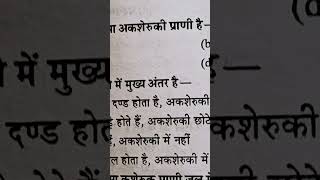 अकशेरुकी प्राणी है—
(b
(d
में मुख्य अंतर है—
दण्ड होता है, अकशेरुकी
होते हैं, अकशेरुकी छोटे
है, अकशेरुकी में नहीं
होता है, अकशेरुकी में